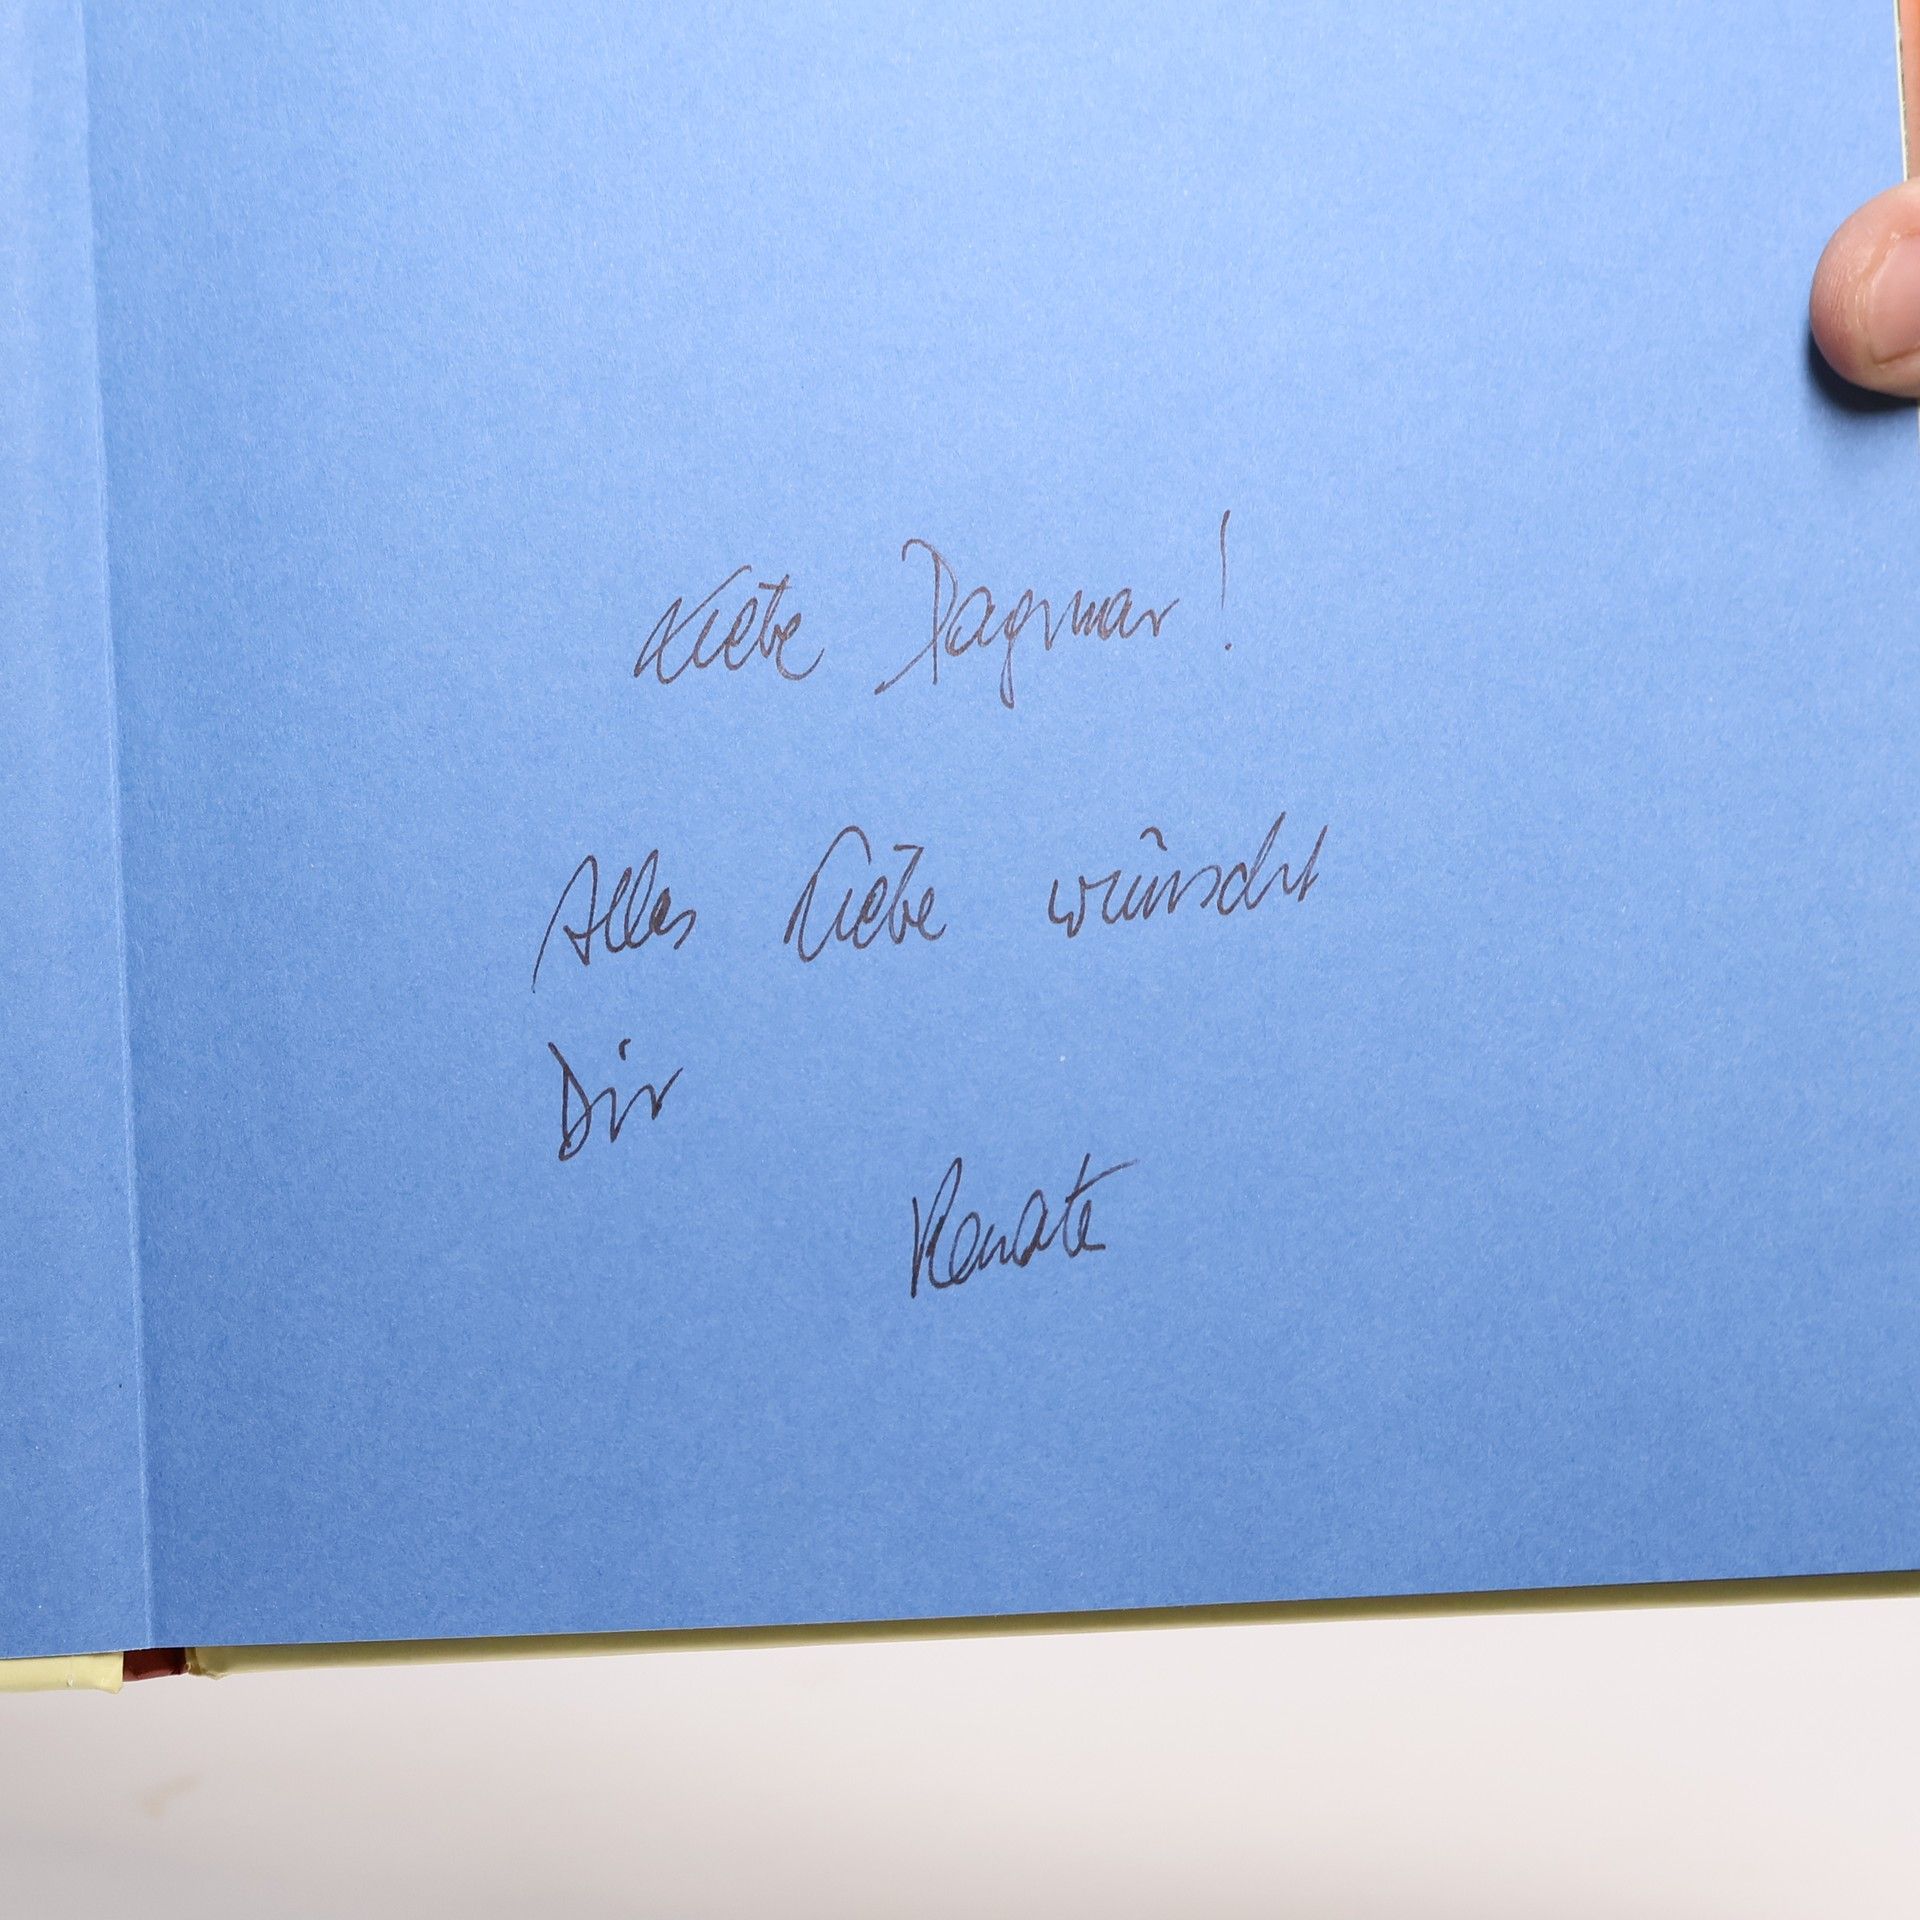 Liebe Dagmar!
Alles Liebe wünscht
Dir
Renate